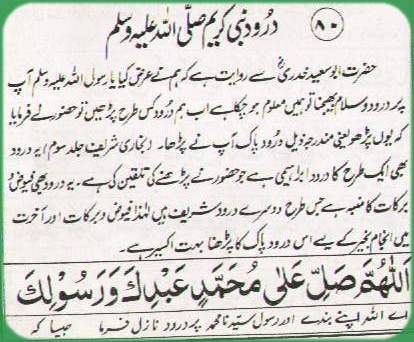 ۸۰ درود نبی کریم صلی اللہ علیہ وسلم
حضرت ابوسعید خدریؓ سے روایت ہے کہ ہم نے عرض کیا یا رسول اللہ صلی اللہ علیہ وسلم آپ
پر درود و سلام بھیجنا تو ہمیں معلوم ہو چکا ہے اب ہم درود کس طرح پڑھیں تو حضور نے فرمایا
کہ یوں پڑھو یعنی مندرجہ ذیل درود پاک آپ نے پڑھا۔ (بخاری شریف جلد سوم) یہ درود
بھی ایک طرح کا درود ابراہیمی ہے جو حضور نے پڑھنے کی تلقین کی ہے۔ یہ درود بھی فیوض و
برکات کا منبع ہے جس طرح دوسرے درود شریف ہیں لہٰذا فیوض و برکات اور آخرت
میں انجام بخیر کے لیے اس درود پاک کا پڑھنا بہت اکسیر ہے۔
اَللّٰهُمَّ صَلِّ عَلٰى مُحَمَّدٍ عَبْدِكَ وَرَسُوْلِكَ
اے اللہ اپنے بندے اور رسول سیدنا محمد پر درود نازل فرما جیسا کہ